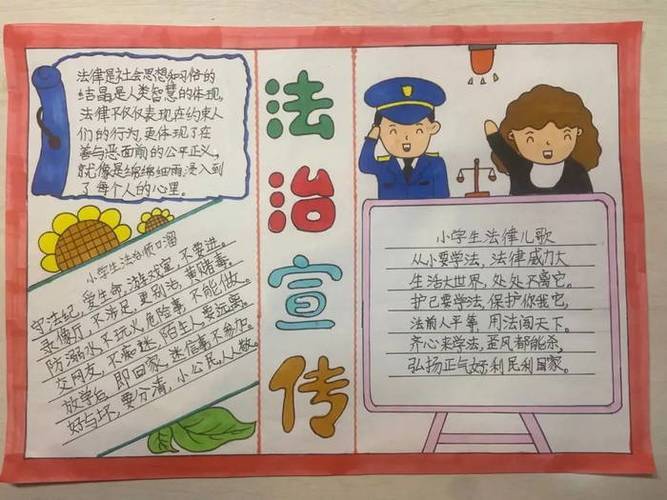 法律是社会思想和习俗的
结晶是人类智慧的体现,
法律不仅仅表现在约束人
们的行为,更体现了在
善与恶面前的公平正义,
就像是绵绵细雨浸入到
了每个人的心里。
小学生法治顺口溜
守法纪,爱生命,游戏室,不要进。
录像厅,不涉足,更别沾,黄赌毒,
防溺水不玩火危险事,不能做。
交网友,不痴迷,陌生人,要远离,
放学后,即回家,迷信事不参与。
好与坏,要分清,小公民,人人敬。
法治宣传
小学生法律儿歌
从小要学法,法律威力大
生活大世界,处处不离它。
护己要学法,保护你我它,
法前人平等,用法闯天下。
齐心来学法,歪风都能杀,
弘扬正气好,利民利国家。